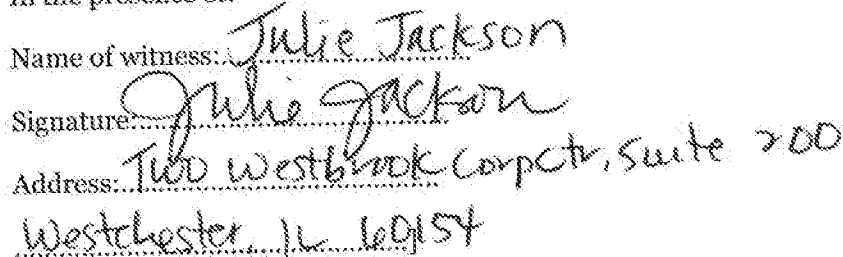 In the presence of:
Name of witness: Julie Jackson
Signature: Julie Jackson
Address: Two Westbrook Corp Ctr, Suite 200
Westchester, IL 60154